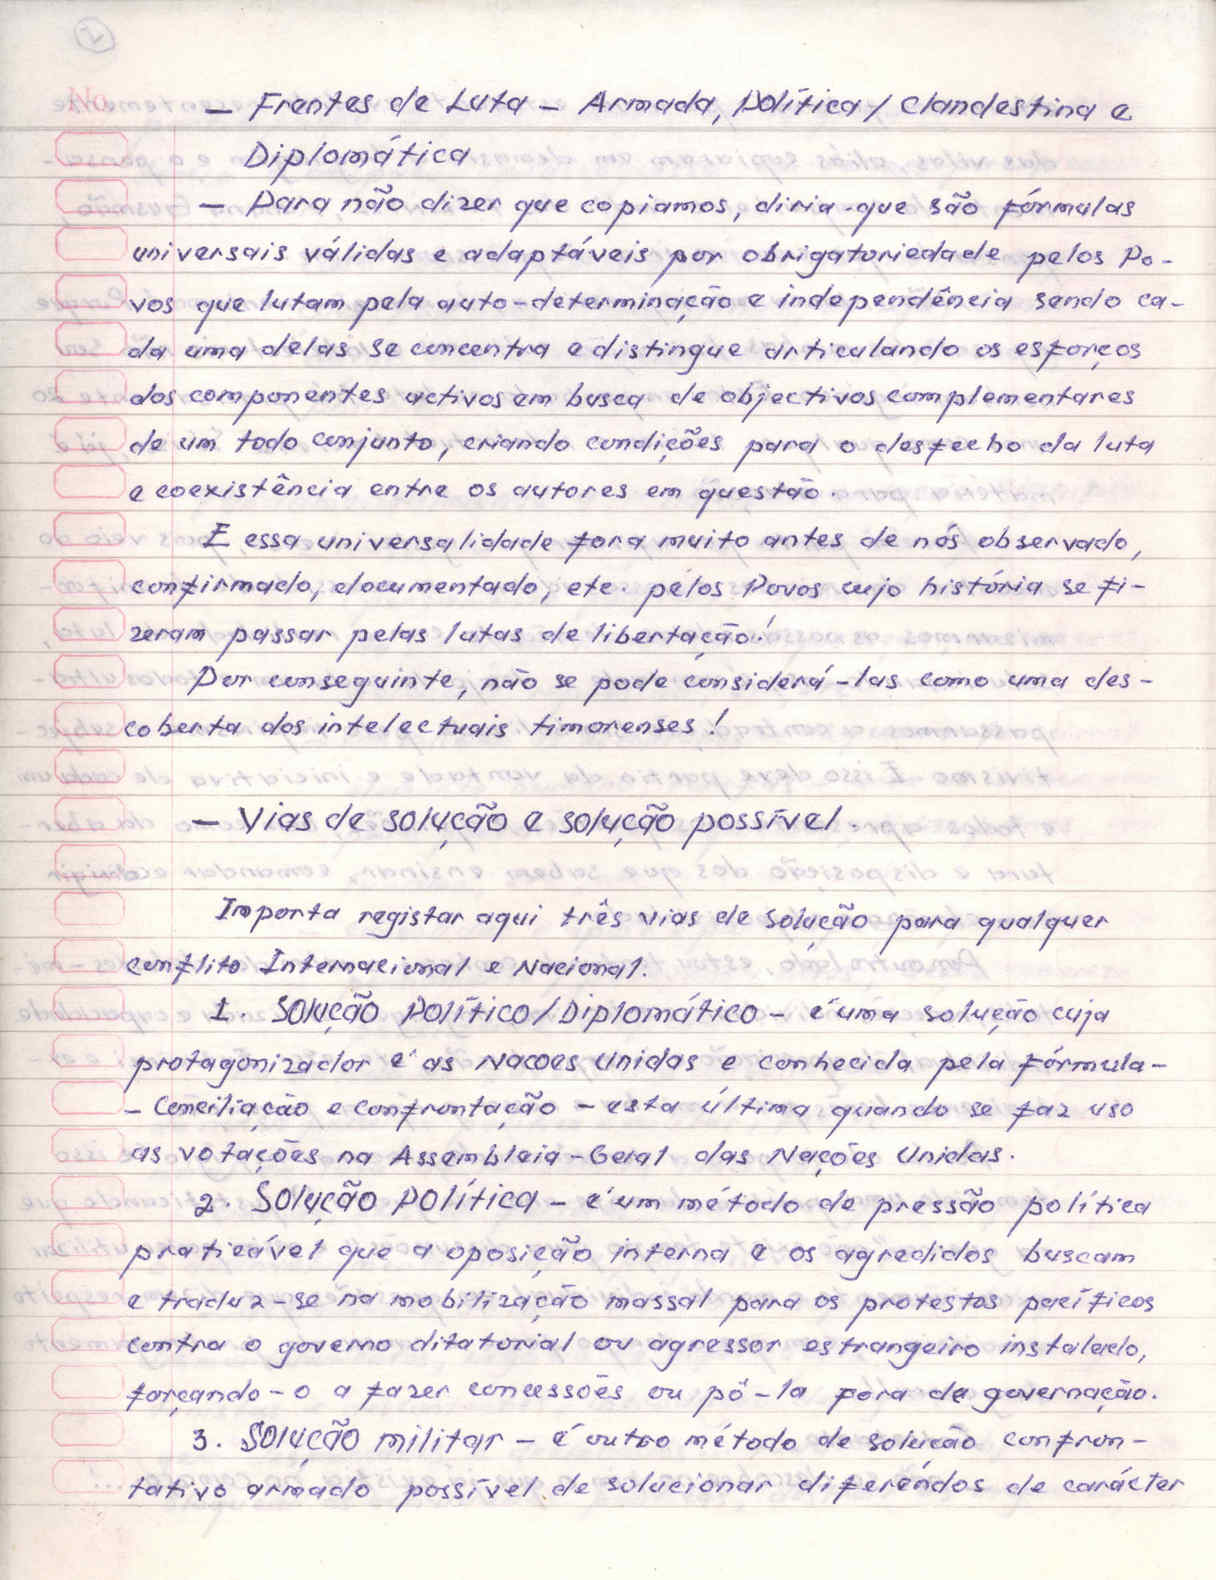 — Frentes de Luta — Armada, Política / Clandestina e
Diplomática
— Para não dizer que copiamos, diria-que são fórmulas
universais válidas e adaptáveis por obrigatoriedade pelos Po-
vos que lutam pela auto-determinação e independência sendo ca-
da uma delas se concentra e distingue articulando os esforços
dos componentes activos em busca de objectivos complementares
de um todo conjunto, criando condições para o desfecho da luta
e coexistência entre os autores em questão.
E essa universalidade fora muito antes de nós observado,
confirmado, documentado, etc. pelos Povos cujo história se fi-
zeram passar pelas lutas de libertação!
Por conseguinte, não se pode considerá-las como uma des-
coberta dos intelectuais timorenses!
— Vias de solução e solução possível.
Importa registar aqui três vias de solução para qualquer
conflito Internacional e Nacional.
1. Solução Político/Diplomático — é uma solução cuja
protagonizador é as Nacoes Unidas e conhecida pela fórmula-
- Conciliação e confrontação — esta última quando se faz uso
as votações na Assembleia-Geral das Nações Unidas.
2. Solução Política — é um método de pressão política
praticável que a oposição interna e os agredidos buscam
e traduz-se na mobilização massal para os protestos pacíficos
contra o governo ditatorial ou agressor estrangeiro instalado,
forçando-o a fazer concessões ou pô-la fora da governação.
3. Solução militar — é outro método de solução confron-
tativo armado possível de solucionar diferendos de carácter